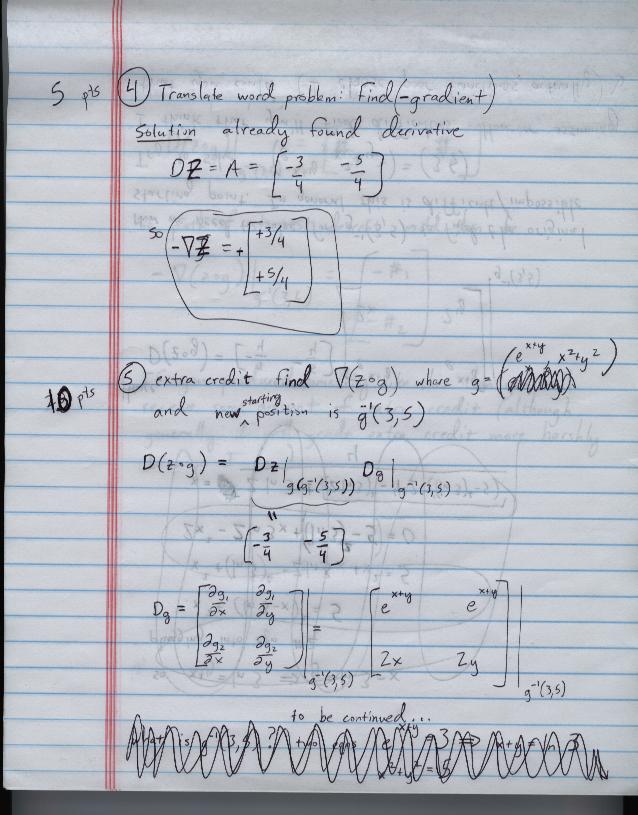 5 pts ④ Translate word problem: Find (-gradient)
Solution already found derivative
DZ = A = [ -3/4 -5/4 ]
so -∇Z = + [ +3/4
+5/4 ]
10 pts ⑤ extra credit find ∇(z∘g) where g = (e^{x+y}, x²+y²)
and new starting position is g⁻¹(3,5)
D(z∘g) = Dz|_{g(g⁻¹(3,5))} Dg|_{g⁻¹(3,5)}
"
[ -3/4 -5/4 ]
Dg = [ ∂g₁/∂x ∂g₁/∂y
∂g₂/∂x ∂g₂/∂y ]|_{g⁻¹(3,5)} = [ e^{x+y} e^{x+y}
2x 2y ]|_{g⁻¹(3,5)}
to be continued...